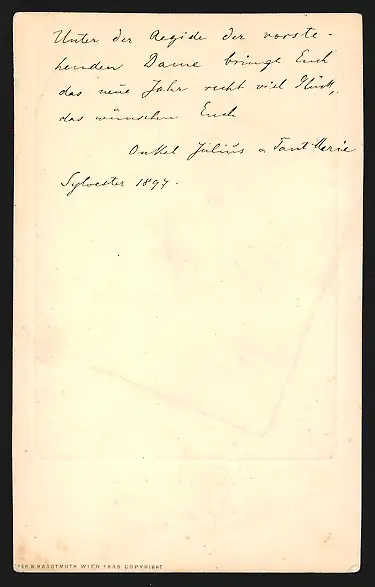 Unter der Aegide der vorste-
henden Dame bringe Euch
das neue Jahr recht viel Glück,
das wünschen Euch
Onkel Julius u Tant Merie
Sylvester 1897.
HARDTMUTH WIEN 1896 COPYRIGHT